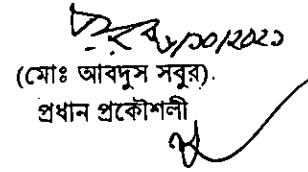 /১০/২০২১
(মোঃ আবদুস সবুর).
প্রধান প্রকৌশলী